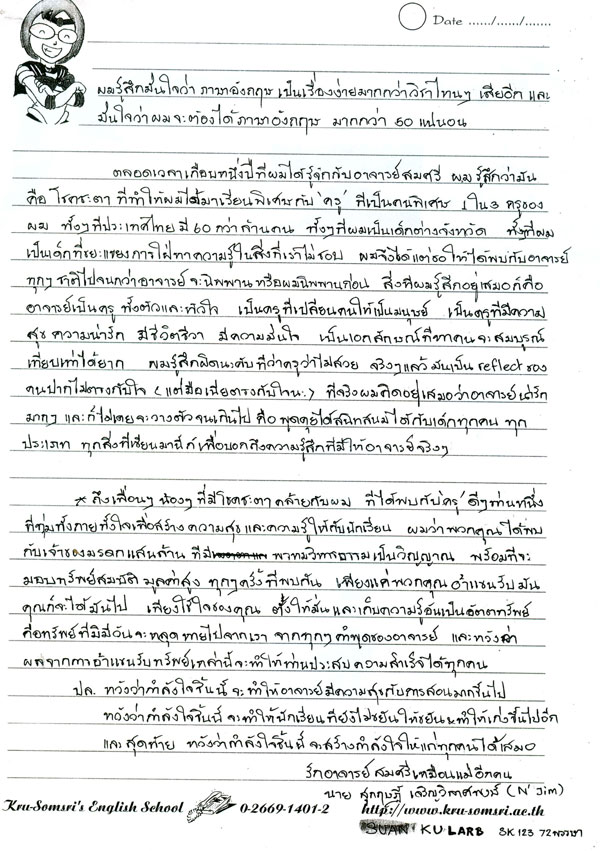 Date ....../....../.......
ผมรู้สึกมั่นใจว่า ภาษาอังกฤษ เป็นเรื่องง่ายมากกว่าวิชาไหนๆ เสียอีก และ
มั่นใจว่าผมจะต้องได้ภาษาอังกฤษ มากกว่า 60 แน่นอน
ตลอดเวลาเกือบหนึ่งปีที่ผมได้รู้จักกับอาจารย์สมศรี ผมรู้สึกว่ามัน
คือ โชคชะตา ที่ทำให้ผมได้มาเรียนพิเศษกับ 'ครู' ที่เป็นคนพิเศษ 1 ใน 3 ครูของ
ผม ทั้งๆ ที่ประเทศไทยมี 60 กว่าล้านคน ทั้งๆ ที่ผมเป็นเด็กต่างจังหวัด ทั้งที่ผม
เป็นเด็กที่ขยะแขยงการใฝ่หาความรู้ในสิ่งที่เราไม่ชอบ ผมจึงได้แต่ขอให้ได้พบกับอาจารย์
ทุกๆ ชาติไปจนกว่าอาจารย์ จะนิพพาน หรือผมนิพพานก่อน สิ่งที่ผมรู้สึกอยู่เสมอก็คือ
อาจารย์เป็นครู ทั้งตัวและหัวใจ เป็นครูที่เปลี่ยนคนให้เป็นมนุษย์ เป็นครูที่มีความ
สุข ความน่ารัก มีชีวิตชีวา มีความมั่นใจ เป็นเอกลักษณ์ที่หาคนจะสมบูรณ์
เทียบเท่าได้ยาก ผมรู้สึกผิดนะคับที่ว่าครูว่าไม่สวย จริงๆ แล้ว มันเป็น reflect ของ
คนปากไม่ตรงกับใจ (แต่มือเขียนตรงกับใจนะ) ที่จริงผมคิดอยู่เสมอว่าอาจารย์น่ารัก
มากๆ และก็ไม่เคยจะวางตัวจนเกินไป คือ พูดคุยได้สนิทสนมได้กับเด็กทุกคน ทุก
ประเภท ทุกสิ่งที่เขียนมานี่ ก็เพื่อบอกถึงความรู้สึกที่มีให้อาจารย์จริงๆ
* ถึงเพื่อนๆ น้องๆ ที่มีโชคชะตาคล้ายกับผม ที่ได้พบกับ 'ครู' ดีๆ ท่านหนึ่ง
ที่ทุ่มทั้งกายทั้งใจเพื่อสร้างความสุขและความรู้ให้กับนักเรียน ผมว่าพวกคุณได้พบ
กับเจ้าของมรดกแสนล้าน ที่มี เป็นวิญญาณ พร้อมที่จะ
มอบทรัพย์สมบัติ มูลค่าสูง ทุกๆ ครั้งที่พบกัน เพียงแค่พวกคุณ อ้าแขนรับมัน
คุณก็จะได้มันไป เพียงใช้ใจของคุณ ตั้งให้มั่น และเก็บความรู้อันเป็น
คือทรัพย์ที่มิมีวันจะหลุดหายไปจากเรา จากทุกๆ คำพูดของอาจารย์ และหวังว่า
ผลจากการอ้าแขนรับทรัพย์เหล่านี้จะทำให้ท่านประสบความสำเร็จได้ทุกคน
ปล. หวังว่ากำลังใจชิ้นนี้ จะทำให้อาจารย์มีความสุขกับการสอนมากขึ้นไป
หวังว่ากำลังใจชิ้นนี้ จะทำให้นักเรียนที่ยังไม่ขยันให้ขยัน ทำให้เก่งขึ้นไปอีก
และสุดท้าย หวังว่ากำลังใจชิ้นนี้ จะสร้างกำลังใจให้แก่ทุกคนได้เสมอ
รักอาจารย์ สมศรีเหมือนแม่อีกคน
นาย (N' Jim)
Kru-Somsri's English School 0-2669-1401-2 http://www.kru-somsri.ac.th
SUAN KULARB SK 123 72 พรรษา